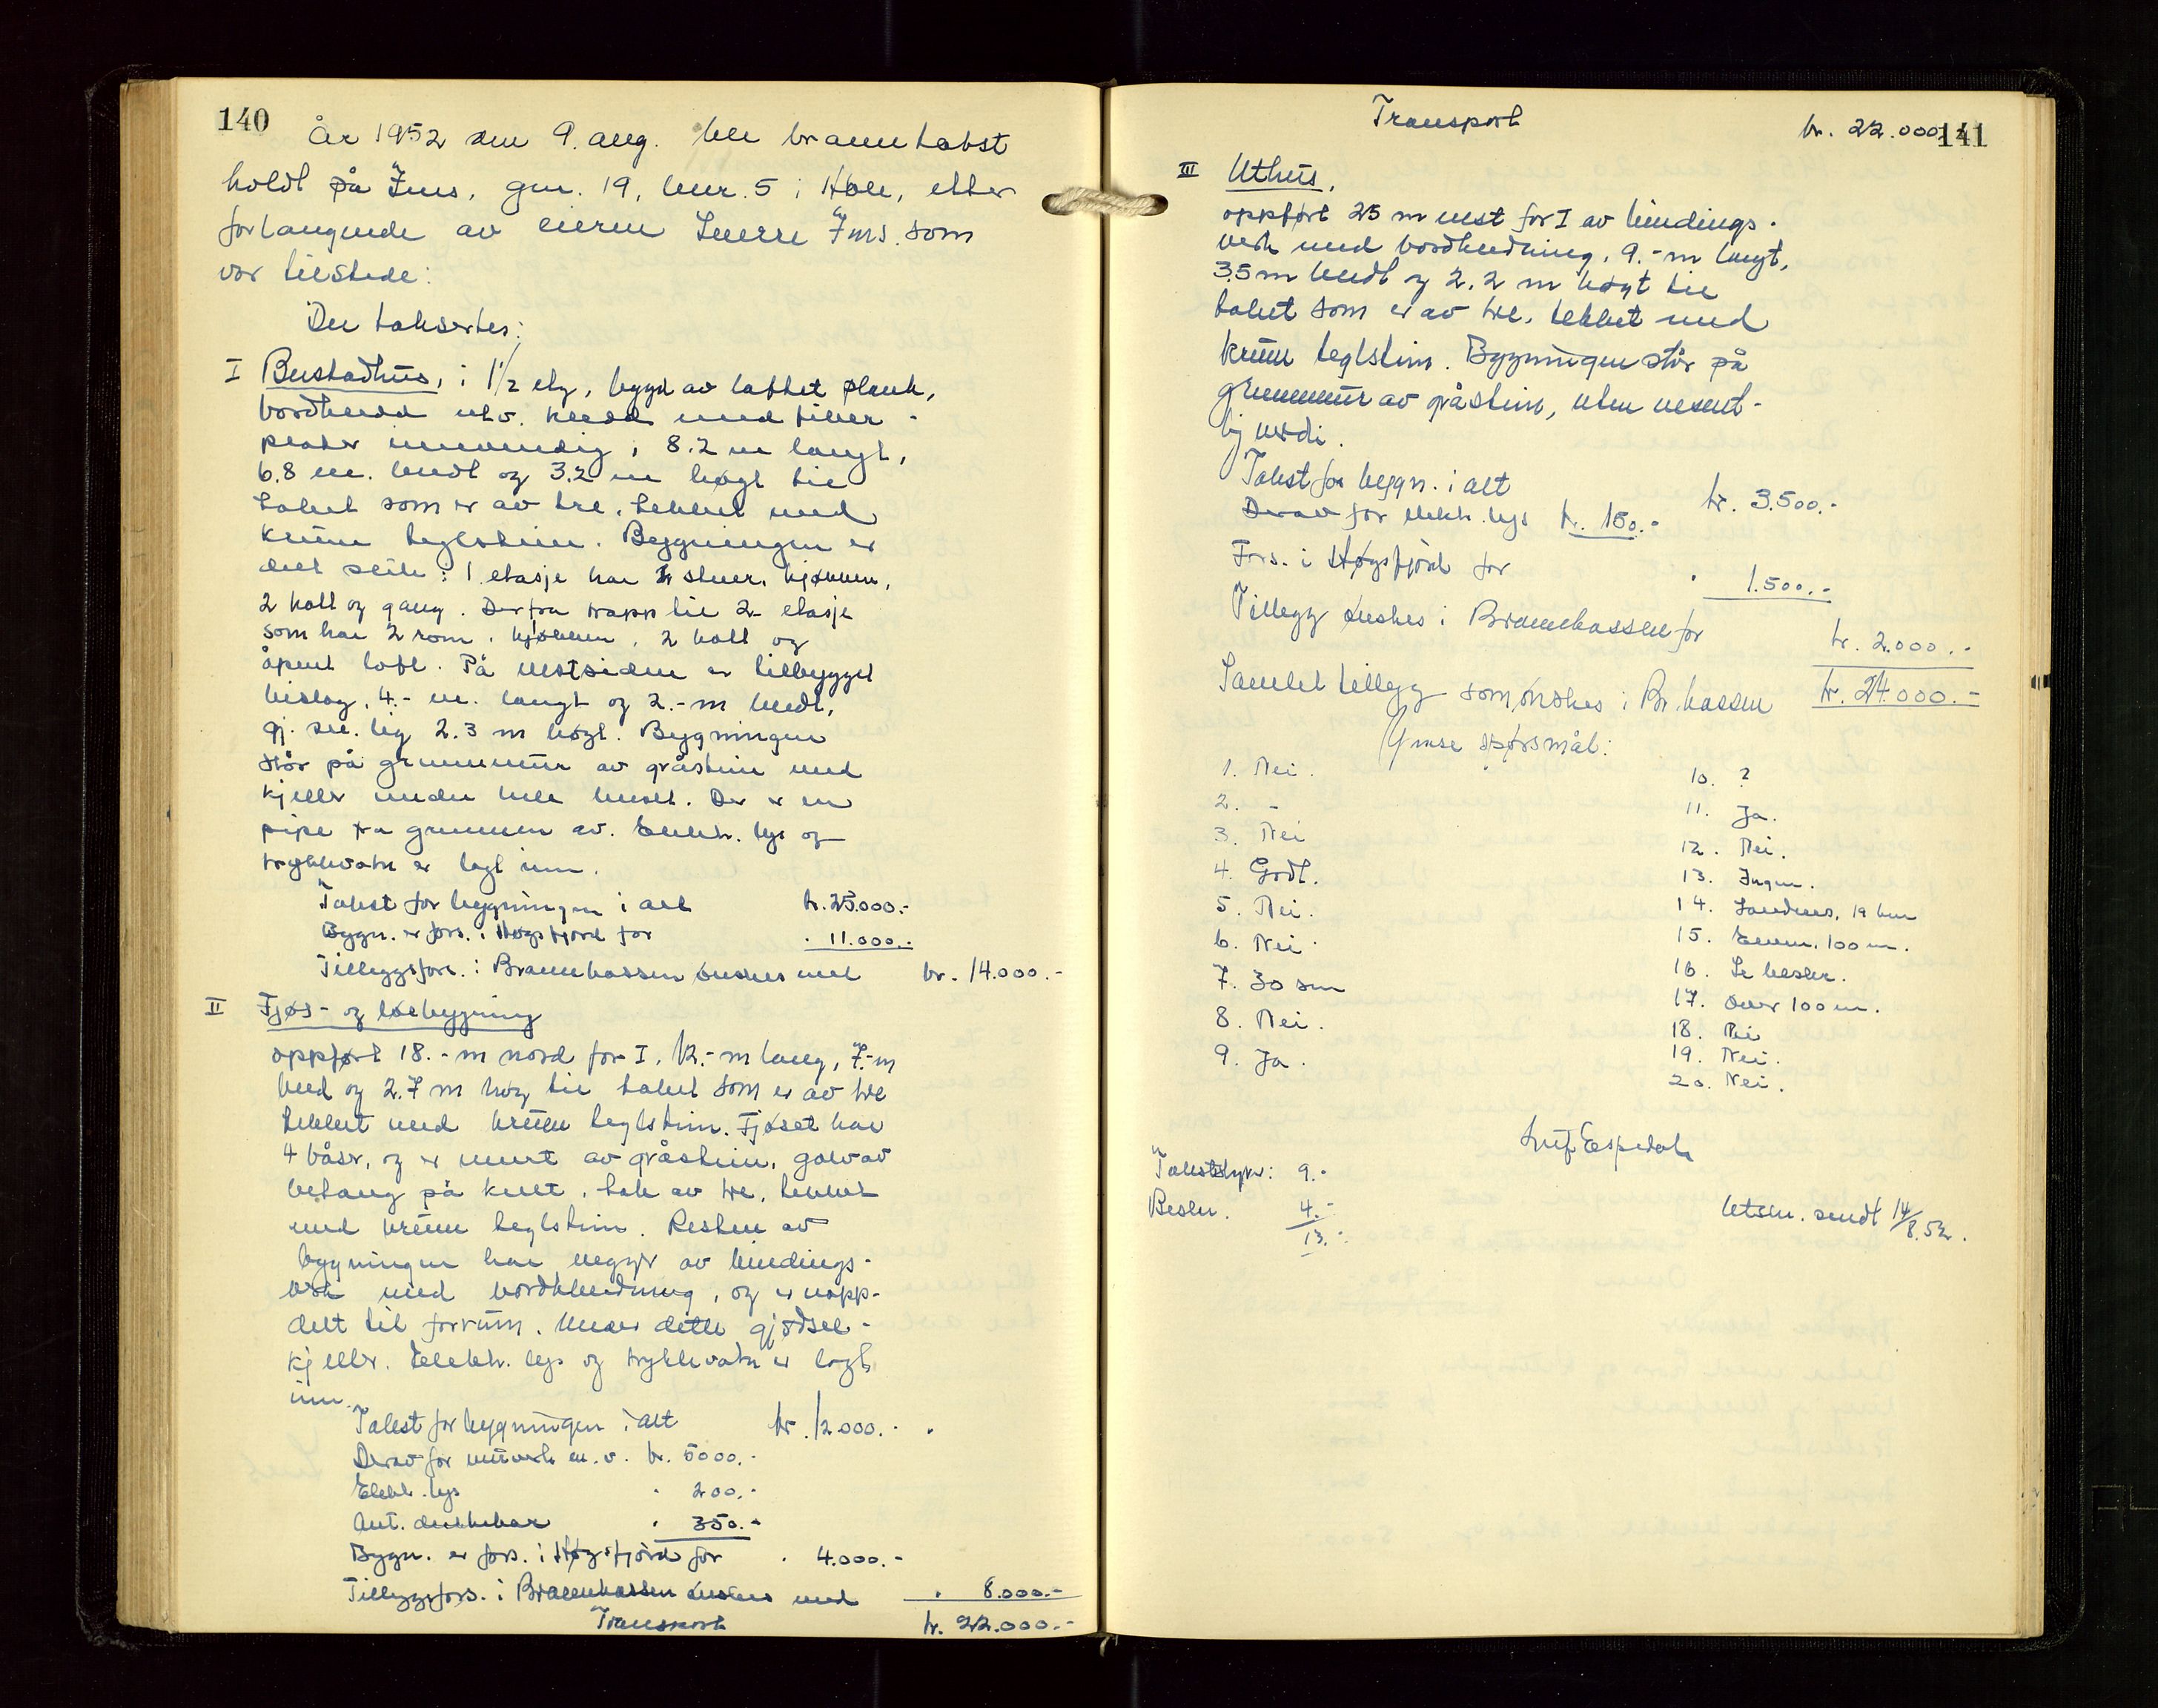 140
År 1952 den 9. aug. ble branntakst
holdt på Ims, gnr. 19, bnr. 5 i Hole, etter
forlangende av eieren Sverre Ims. som
var tilstede:
Der taksertes:
I Bustadhus, i 1 1/2 etg, bygd av laftet plank,
bordkledd utv. kledd med fiber-
plater innvendig, 8.2 m langt,
6.8 m. bredt og 3.2 m høgt til
taket som er av tre, tekket med
krum teglstein. Bygningen er
delt slik: 1. etasje har stuer, kjøkken,
2 kott og gang. Derfra trapp til 2. etasje
som har 2 rom, kjøkken, 2 kott og
åpent loft. På vestsiden er tilbygget
bislag, 4.- m. langt og 2.- m bredt,
gj. snl. lig 2.3 m høgt. Bygningen
står på grunnmur av gråstein med
kjeller under hele huset. Der er en
pipe fra grunnen av. Elektr. lys og
trykkvatn er lagt inn.
Takst for bygningen i alt kr. 25.000.-
Bygn. er fors. i Høgsfjord for " 11.000.-
Tilleggsfors. i Brannkassen ønskes med kr. 14.000.-
II Fjøs- og løebygning
oppført 18.- m nord for I, 12.- m lang, 7.- m
bred og 2.7 m høg til taket som er av tre
tekket med krum teglstein. Fjøset har
4 båser, og er murt av gråstein, golv av
betong på kult, tak av tre, tekket
med krum teglstein. Resten av
bygningen har vegger av bindings-
verk med bordkledning, og er opp-
delt til forrum. Under dette gjødsel-
kjeller. Elektr. lys og trykkvatn er lagt
inn.
Takst for bygningen i alt kr. 12.000.-
Derav for murverk m.v. kr. 5000.-
Elektr. lys " 200.-
Aut. drikkekar " 350.-
Bygn. er fors. i Høgsfjord for " 4.000.-
Tilleggsfors. i Brannkassen ønskes med " 8.000.-
Transport kr. 22.000.-
141
Transport kr. 22.000.-
III Uthus,
oppført 25 m vest for I av bindings-
verk med bordkledning, 9.- m langt,
3.5 m bredt og 2.2 m høgt til
taket som er av tre, tekket med
krum teglstein. Bygningen står på
grunnmur av gråstein, uten vesent-
lig verdi.
Takst for bygn. i alt kr. 3.500.-
Derav for elektr. lys kr. 150.-
Fors. i Høgsfjord for " 1.500.-
Tillegg ønskes i Brannkassen for kr. 2.000.-
Samlet tillegg som ønskes i Br. kassen kr. 24.000.-
Ymse spørsmål:
1. Nei.
2. -
3. Nei
4. Godt.
5. Nei.
6. Nei
7. 30 sm
8. Nei.
9. Ja.
10. ?
11. Ja.
12. Nei.
13. Ingen.
14. Sandnes, 19 km
15. 100 m.
16. Se
17. Over 100 m.
18. Nei
19. Nei.
20. Nei.
Leif Espedal
Takststyre: 9.-
Beskr. 4.-
13.-
Utskr. sendt 14/8.52.